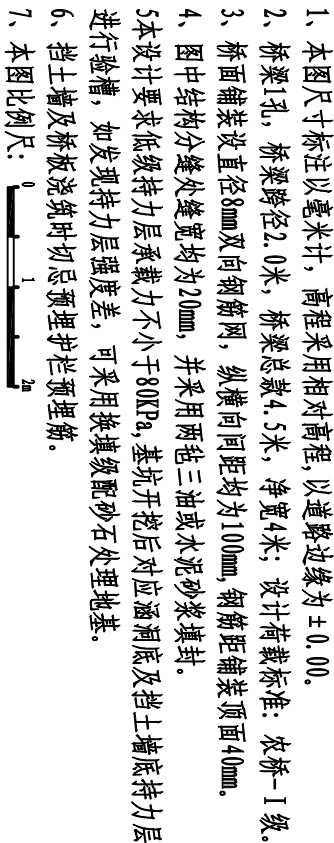 1、本图尺寸标注以毫米计，高程采用相对高程,以道路边缘为±0.00。
2、桥梁1孔，桥梁跨径2.0米，桥梁总款4.5米，净宽4米；设计荷载标准：农桥-I级。
3、桥面铺装设直径8mm双向钢筋网，纵横向间距均为100mm,钢筋距铺装顶面40mm。
4、图中结构分缝处缝宽均为20mm，并采用两毡三油或水泥砂浆填封。
5本设计要求低级持力层承载力不小于80KPa,基坑开挖后对应涵洞底及挡土墙底持力层
进行验槽，如发现持力层强度差，可采用换填级配砂石处理地基。
6、挡土墙及桥板浇筑时切忌预埋护栏预埋筋。
7、本图比例尺：
0 1 2m